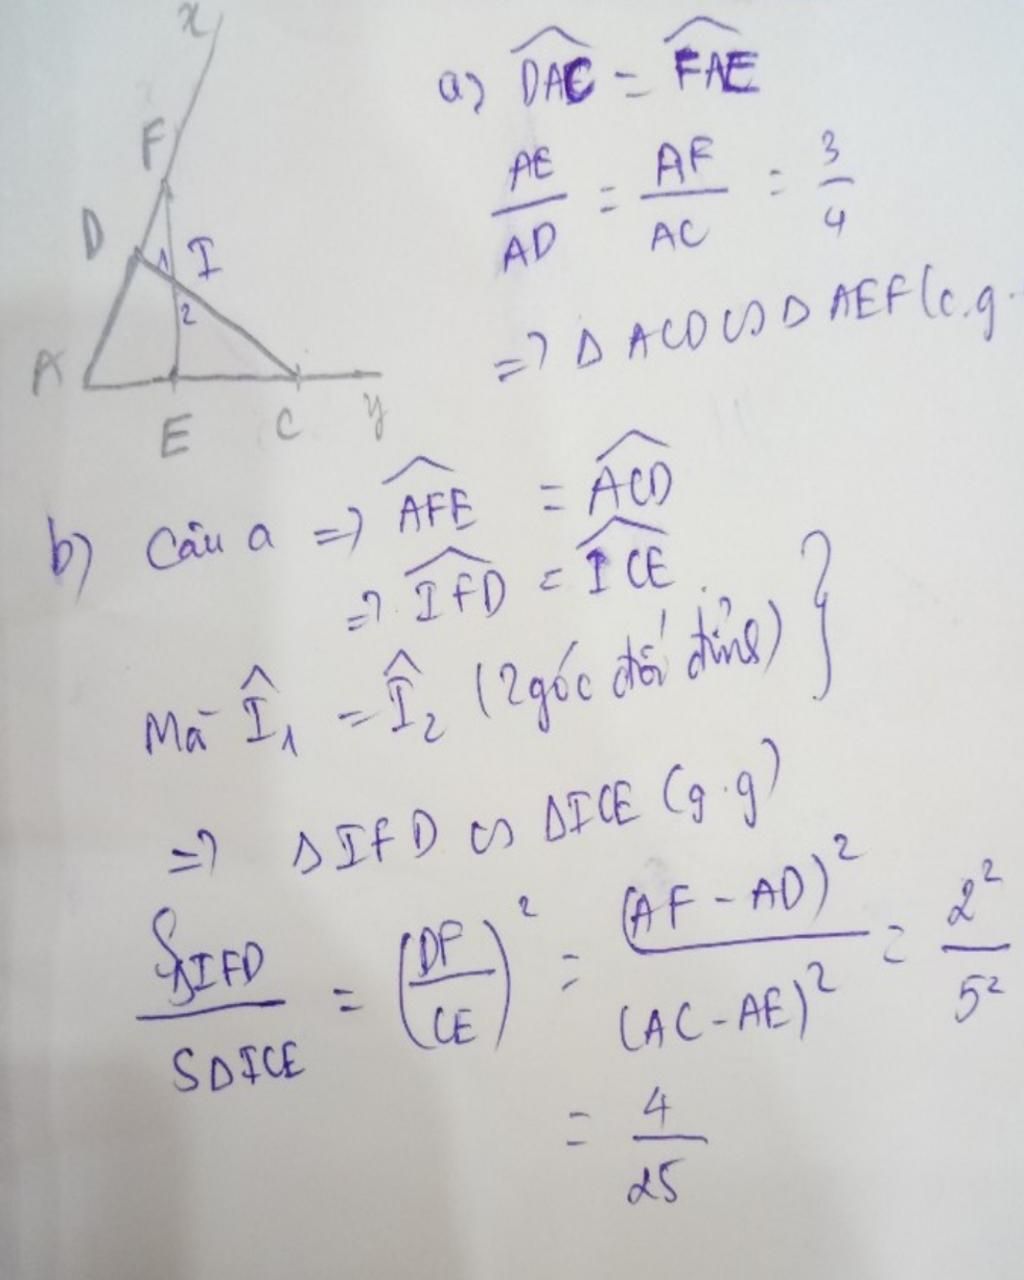 x
F
D
1
I
2
A
E
C
y
a) \widehat{DAC} = \widehat{FAE}
\frac{AE}{AD} = \frac{AF}{AC} = \frac{3}{4}
=> Δ ACD ∽ Δ AEF (c.g.
b) Câu a => \widehat{AFE} = \widehat{ACD}
=> \widehat{IFD} = \widehat{ICE}
Mà \widehat{I}_1 = \widehat{I}_2 (2 góc đối đỉnh) }
=> Δ IFD ∽ Δ ICE (g.g)
\frac{S_{ΔIFD}}{SΔICE} = (\frac{DF}{CE})^2 = \frac{(AF - AD)^2}{(AC - AE)^2} = \frac{2^2}{5^2}
= \frac{4}{25}